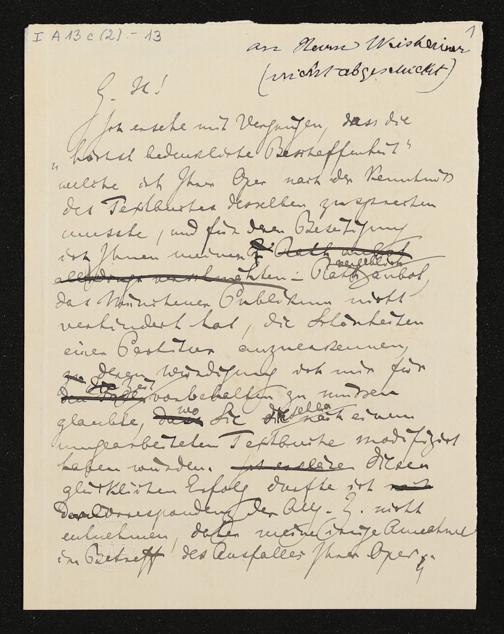 I A 13 c (2) - 13
1
an Herrn Weisheimer
(nicht abgeschickt)
G. H!
Ich ersehe mit Vergnügen, dass die
"höchst bedenkliche Beschaffenheit"
welche ich Ihrer Oper nach der Kenntniß
des Textbuches derselben zusprechen
musste, und für deren Beseitigung
ich Ihnen meinen Rath anbot
allerdings verschmähten - vergeblich Rath anbot,
das Münchener Publikum nicht
verhindert hat, die Schönheiten
einer Partitur anzuerkennen,
zu deren Würdigung ich mir für
die Zeit vorbehalten zu müssen
glaubte, dass wo Sie dieselbe nach einem
umgearbeiteten Textbuche modifizirt
haben würden. diesen
glücklichen Erfolg durfte ich
Correspondenz der Allg. Z. nicht
entnehmen, daher meine irrige Annahme
im Betreff des Ausfalles Ihrer Oper